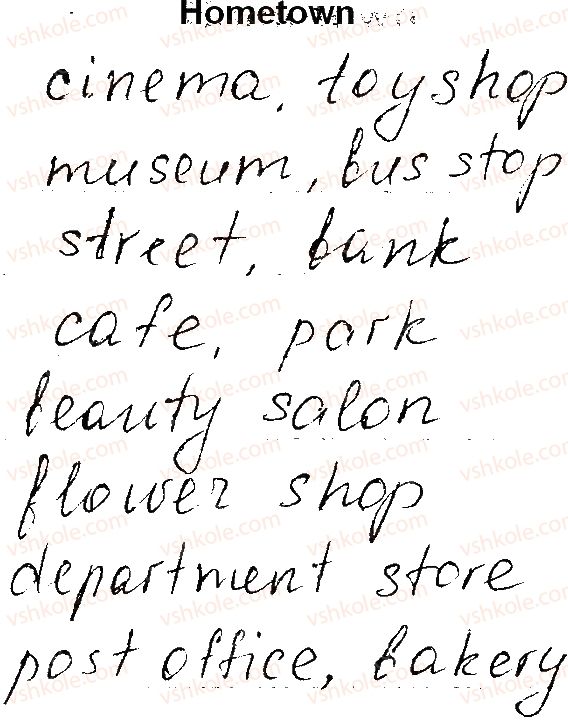 Hometown
cinema, toyshop
museum, bus stop
street, bank
cafe, park
beauty salon
flower shop
department store
post office, bakery